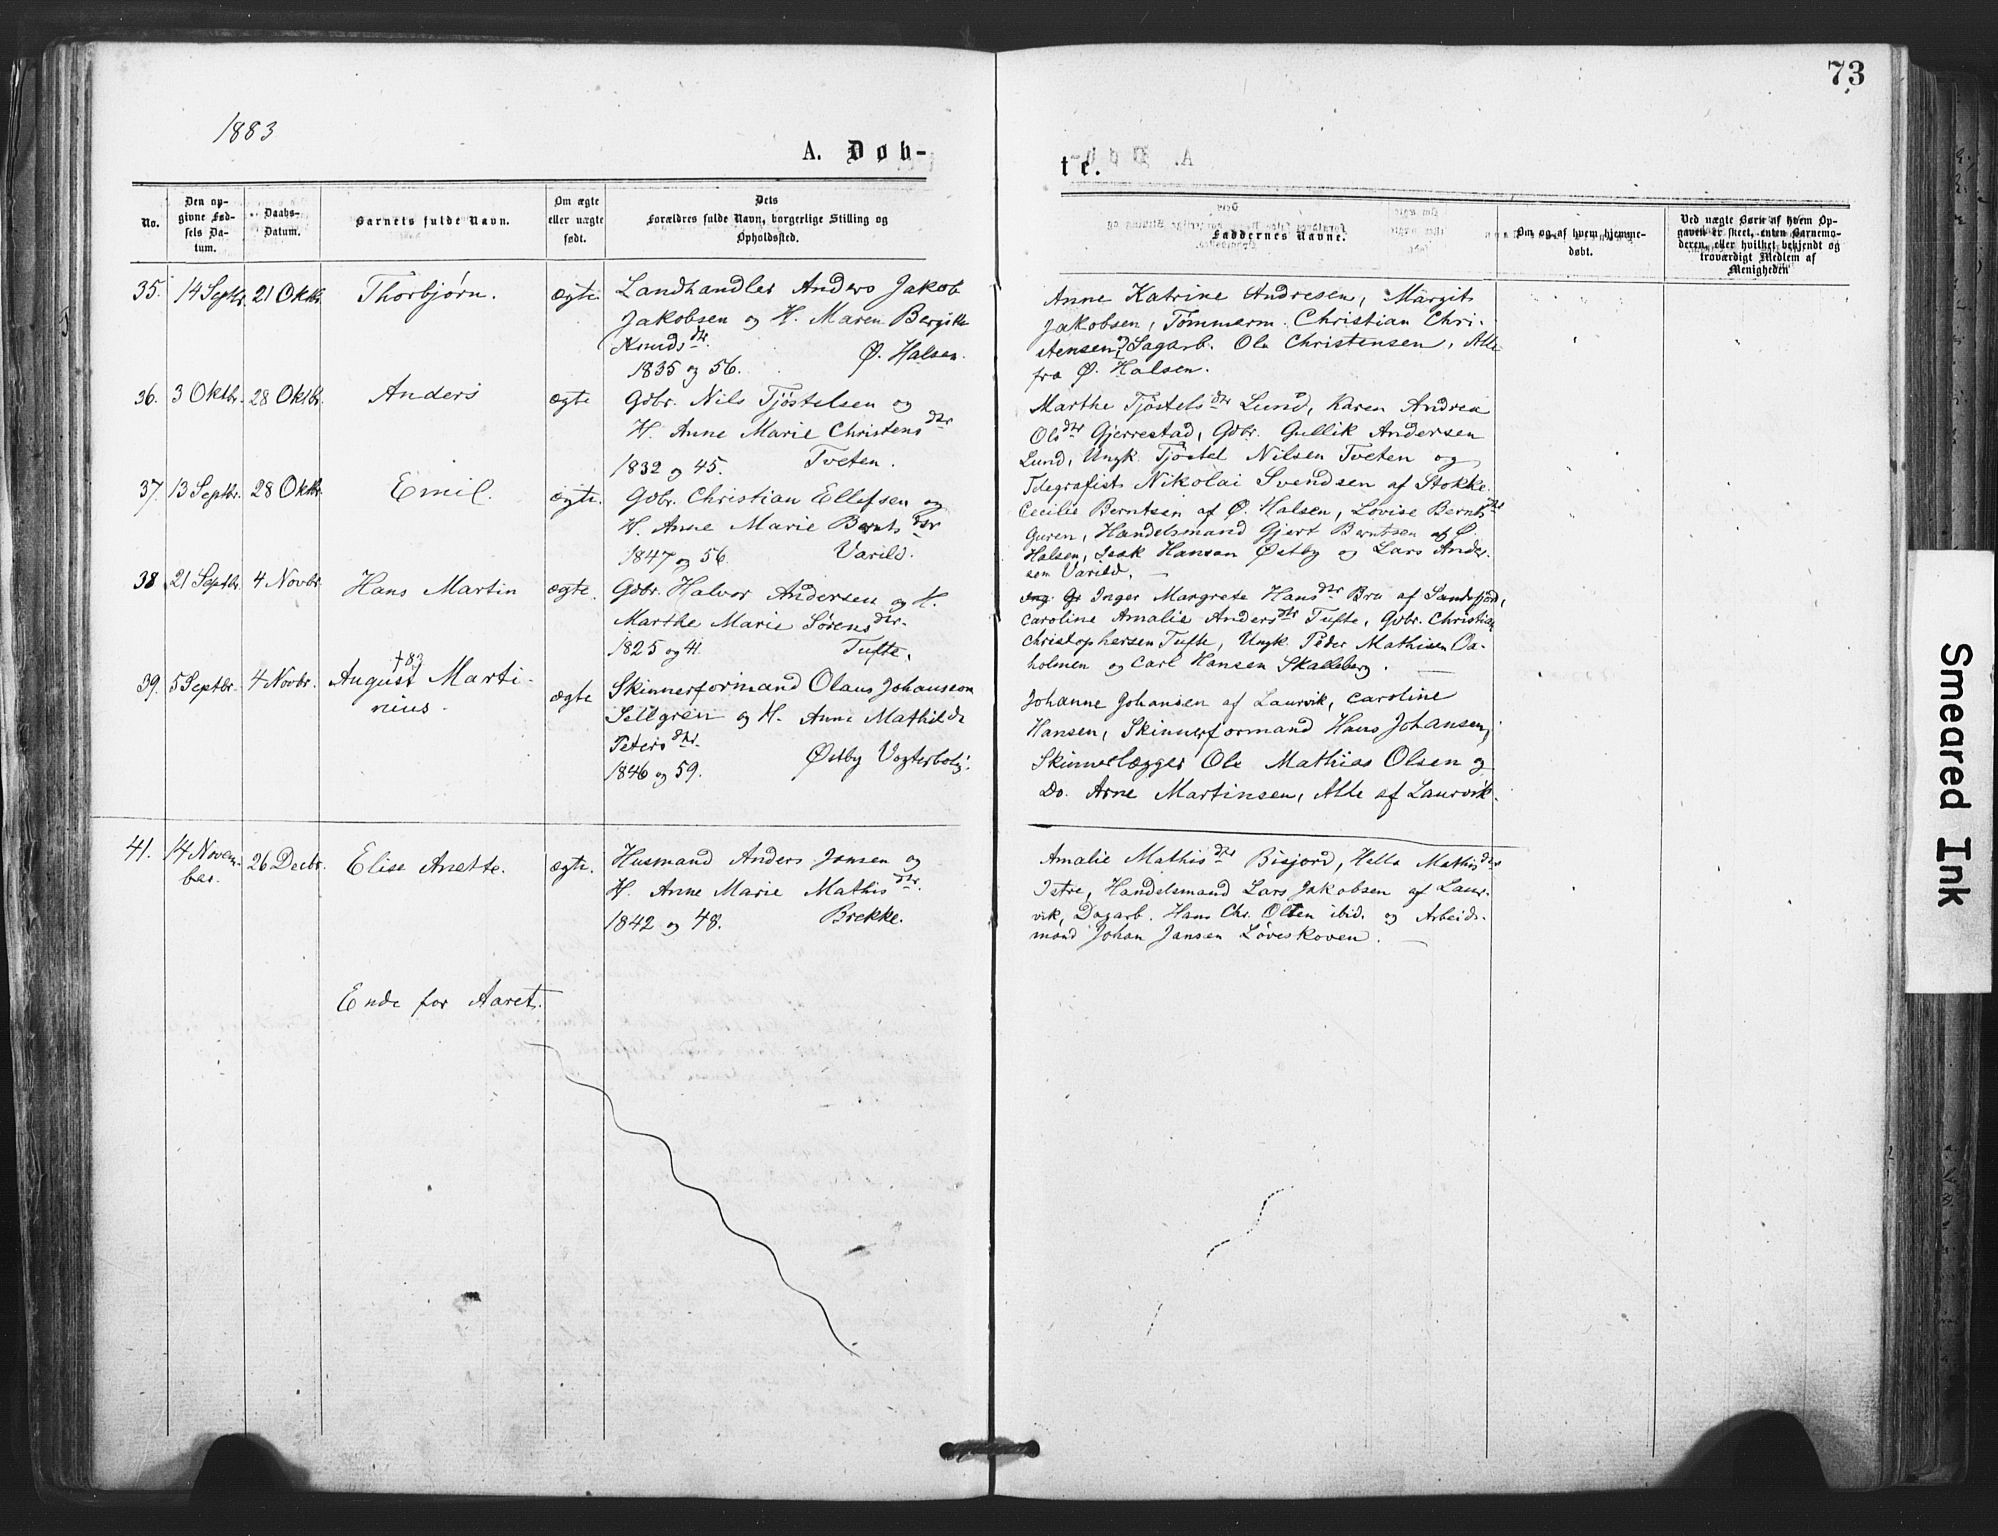 73
1883
A. Døb-
te.
No.
Den opgivne Fødsels Datum.
Daabs-Datum.
Barnets fulde Navn.
Om ægte eller uægte født.
Dets Forældres fulde Navn, borgerlige Stilling og Opholdssted.
Faddernes Navne.
Om og af hvem hjemmedøbt.
Ved uægte Børn af hvem Opgaven er skeet, enten Barnemoderen, eller hvilket bekjendt og troværdigt Medlem af Menigheden
35. 14 Septbr. 21 Oktbr. Thorbjørn. ægte. Landhandler Anders Jakob
Jakobsen og H. Maren Bergitte
Knudsdtr. Ø. Halsen.
1835 og 56.
Anne Katrine Andresen, Margit
Jakobsen, Tømmerm. Christian Chri-
stensen, Sagarb. Ole Christensen, Alle
fra Ø. Halsen.
36. 3 Oktbr. 28 Oktbr. Anders ægte Gdbr. Nils Tjøstelsen og
H. Anne Marie Christensdtr
1832 og 45. Tveten.
Marthe Tjøstelsdtr Lund, Karen Andrea
Olsdtr Gjerrestad, Gdbr. Gullik Andersen
Lund, Ungk. Tjøstel Nilsen Tveten og
Telegrafist Nikolai Svendsen af Stokke.
37. 13 Septbr. 28 Oktbr. Emil. ægte. Gdbr. Christian Ellefsen og
H. Anne Marie Berntsdtr
1847 og 56. Varild.
Cecilie Berntsen af Ø. Halsen, Lovise Berntsdtr
Guren, Handelsmand Gjert Berntsen af Ø.
Halsen, Isak Hansen Østby og Lars Ander-
sen Varild.
38. 21 Septbr. 4 Novbr. Hans Martin ægte. Gdbr. Halvor Andersen og H.
Marthe Marie Sørensdtr.
1825 og 41. Tufte.
Inger Margrete Hansdtr Bru af Sandefjord,
Caroline Amalie Andersdtr Tufte, Gdbr. Christian
Christophersen Tufte, Ungk. Peder Mathisen Oa-
holmen og Carl Hansen Skalleberg.
† 83
39. 5 Septbr. 4 Novbr. August Marti-
nius. ægte Skinnerformand Olaus Johansson
Sellgren og H. Anne Mathilde
Petersdtr.
1846 og 59. Østby Vogterbolig.
Johanne Johansen af Laurvik, Caroline
Hansen, Skinnerformand Hans Johansen,
Skinnelægger Ole Mathias Olsen og
Do. Arne Martinsen, Alle af Laurvik.
41. 14 Novem-
ber. 26 Decbr. Elise Anette. ægte. Husmand Anders Jansen og
H. Anne Marie Mathisdtr.
1842 og 48. Brekke.
Amalie Mathisdtr Bisjord, Helle Mathisdtr
Istre, Handelsmand Lars Jakobsen af Laur-
vik, Dagarb. Hans Chr. Olsen ibid. og Arbeids-
mand Johan Jansen Løveskoven.
Ende for Aaret.
Smeared Ink